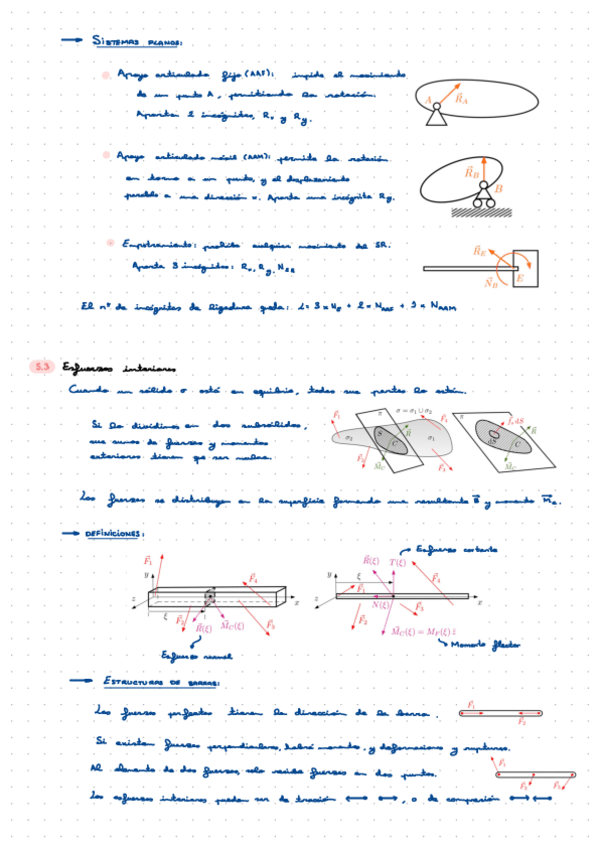 → SISTEMAS PLANOS:
Apoyo articulado fijo (AAF): impide el movimiento
de un punto A, permitiendo la rotación.
Aporta 2 incógnitas, Rx y Ry.
A R⃗_A
Apoyo articulado móvil (AAM): permite la rotación
en torno a un punto, y el desplazamiento
paralelo a una dirección x. Aporta una incógnita Ry.
R⃗_B B
Empotramiento: prohibe cualquier movimiento del SR.
Aporta 3 incógnitas: Rx, Ry,
R⃗_E
E
El nº de incógnitas de ligadura queda:
5.3 Esfuerzos interiores
Cuando un sólido σ está en equilibrio, todas sus partes lo están.
Si lo dividimos en dos subsólidos,
sus sumas de fuerzas y momentos
exteriores tienen que ser nulas.
F⃗₁ π σ = σ₁ ∪ σ₂ F⃗₄ π
σ₂ S C R⃗ σ₁ dS C R⃗
F⃗₂ M⃗_C F⃗₃ M⃗_C
Las fuerzas se distribuyen en la superficie formando una resultante R⃗ y momento M⃗c.
→ DEFINICIONES:
Esfuerzo cortante
F⃗₁ y ξ F⃗₄ x z
F⃗₂ R⃗(ξ) M⃗_C(ξ) F⃗₃
R⃗(ξ) T(ξ) F⃗₄
y ξ F⃗₁ x z N(ξ) F⃗₃
F⃗₂ M⃗_C(ξ) = M_F(ξ)
Esfuerzo normal
Momento flector
→ ESTRUCTURAS DE BARRAS:
Las fuerzas tienen la dirección de la barra.
F⃗₁ F⃗₂
Si existen fuerzas perpendiculares, habrá momento, y deformaciones y rupturas.
Al elemento de dos fuerzas, solo recibe fuerzas en dos puntos.
F⃗₁ F⃗₂ F⃗₃
Los esfuerzos interiores pueden ser de tracción ↔ ↔, o de compresión